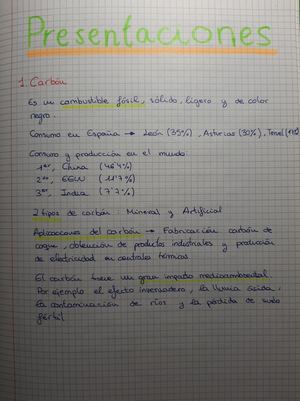 Presentaciones
1. Carbón
Es un combustible fósil, sólido, ligero y de color
negro.
Consumo en España → León (35%), Asturias (30%), Teruel
Consumo y producción en el mundo:
1er, China (46'4%)
2do, EEUU (11'7%)
3er, India (7'7%)
2 tipos de carbón: Mineral y Artificial
Aplicaciones del carbón → Fabricación carbón de
coque, obtención de productos industriales y producción
de electricidad en centrales térmicas
El carbón tiene un gran impacto medioambiental.
Por ejemplo el efecto invernadero, la lluvia ácida,
la contaminación de ríos y la pérdida de suelo
fértil